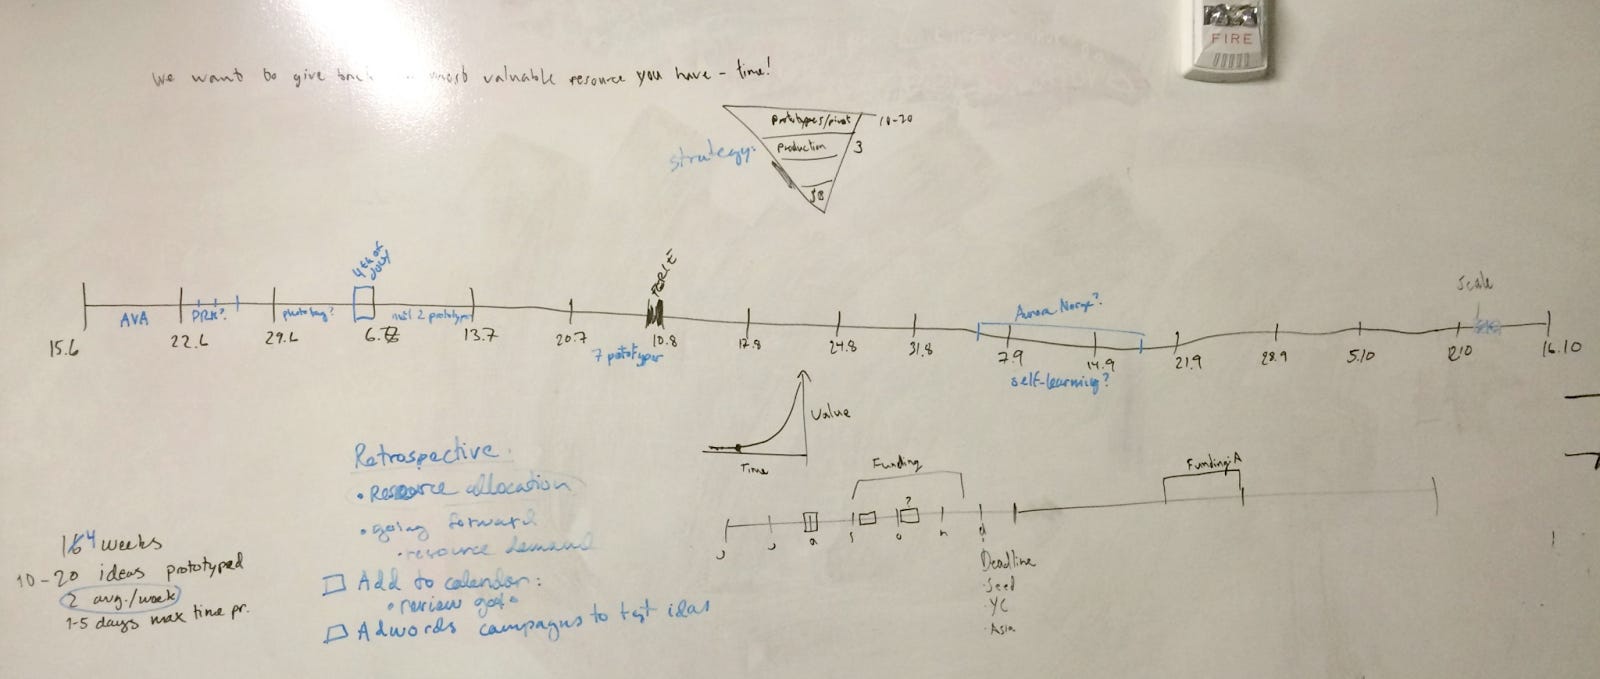 FIRE
We want to give back most valuable resource you have - time!
strategy:
prototypes/pivot 10-20
production 3
$B
4th of
July
Scale
AVA
PRK?
photobag?
until 2 prototypes
7 pototyper
Aurora Norge?
self-learning?
15.6 22.6 29.6 6.7 13.7 20.7 10.8 17.8 24.8 31.8 7.9 14.9 21.9 28.9 5.10 16.10
Value
Time
Retrospective.
• Resource allocation
• going forward
• resource demand
Add to calendar:
• review goals
Adwords campagns to test idas
4 weeks
10-20 ideas prototyped
2 avg./week
1-5 days max time pr.
Funding
Funding:A
?
J J a s o n d
Deadline
· Seed
· YC
· Asia